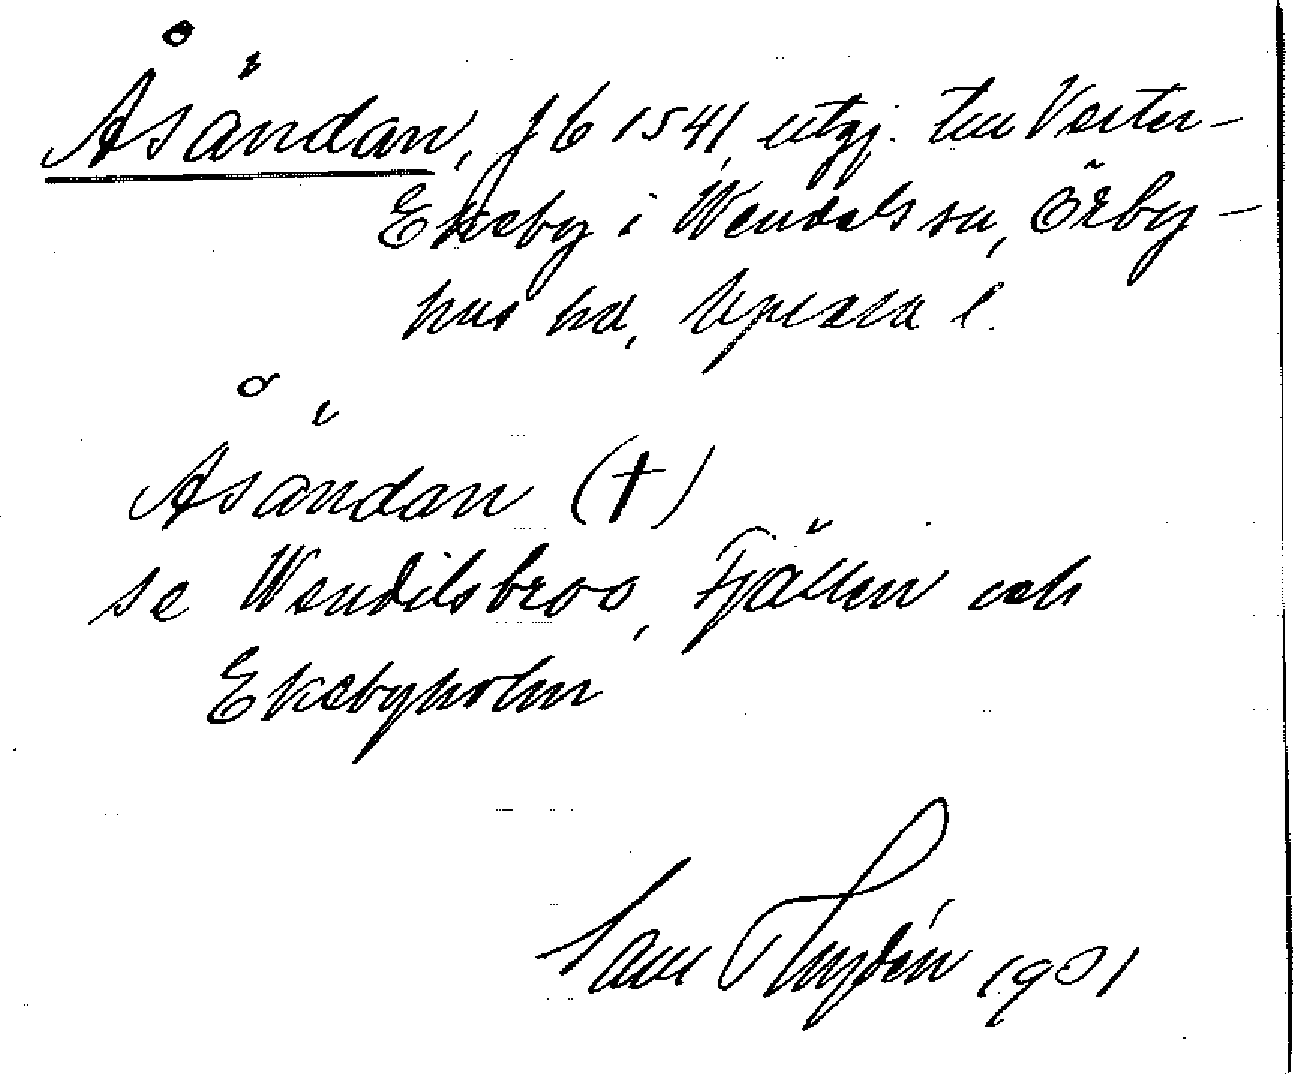 Åsändan, jb 1541, utgj. till Vester-
Ekeby i Wendels sn, Örby-
hus hd, Upsala l.
Åsändan (†)
se Wendelsbro, Fjällen och
Ekebyholm
1901